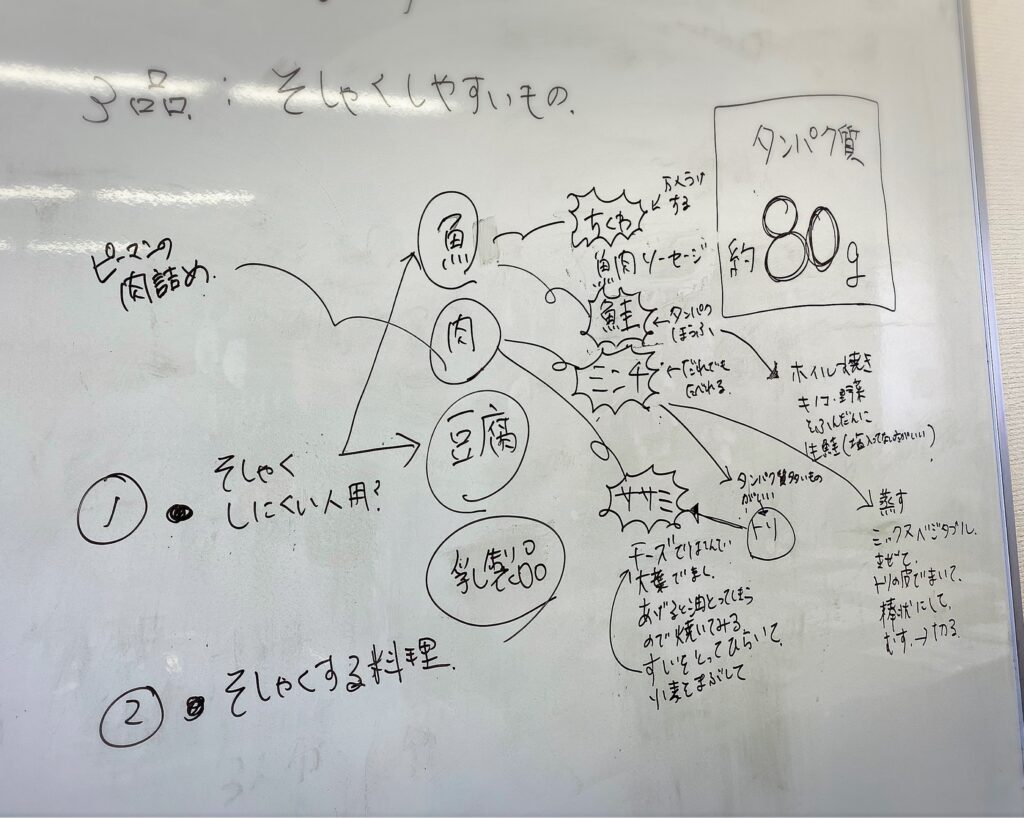 3品：そしゃくしやすいもの.
タンパク質
約80g
ピーマンの
肉詰め.
魚
肉
豆腐
乳製品
ちくわ
万人うけ
する
魚肉ソーセージ
鮭
タンパク
ほうふ
ミンチ
だれでも
たべれる.
ササミ
トリ
タンパク質多いもの
がいい
ホイル焼き
キノコ・野菜
とふんだんに
生鮭(塩入ってないほうがいい)
蒸す
ミックスベジタブル.
まぜて.
トリの皮でまいて.
棒状にして.
むす.→切る.
チーズではさんで
大葉でまく.
あげると油とってしまう
ので焼いてみる
すじをとってひらいて.
小麦をまぶして
1 ● そしゃく
しにくい人用?
2 ● そしゃくする料理.